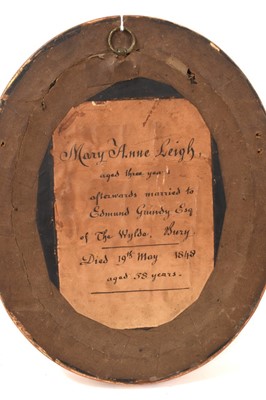 Mary Anne Leigh,
aged three years
afterwards married to
Edmund Grundy Esq
of The Wylde, Bury
Died 19th May 1848
aged 58 years.